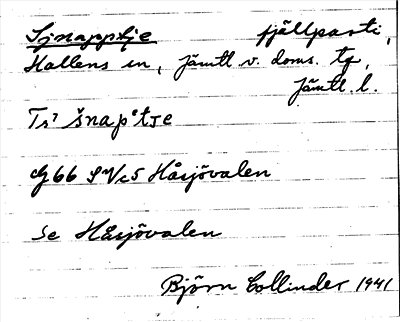 Sjnapptje fjällparti,
Hallens sn, Jämtl. v. doms. tg,
Jämtl. l.
šnap'tje
G66 SVc5 Håsjövalen
Se Håsjövalen
Björn Collinder 1941